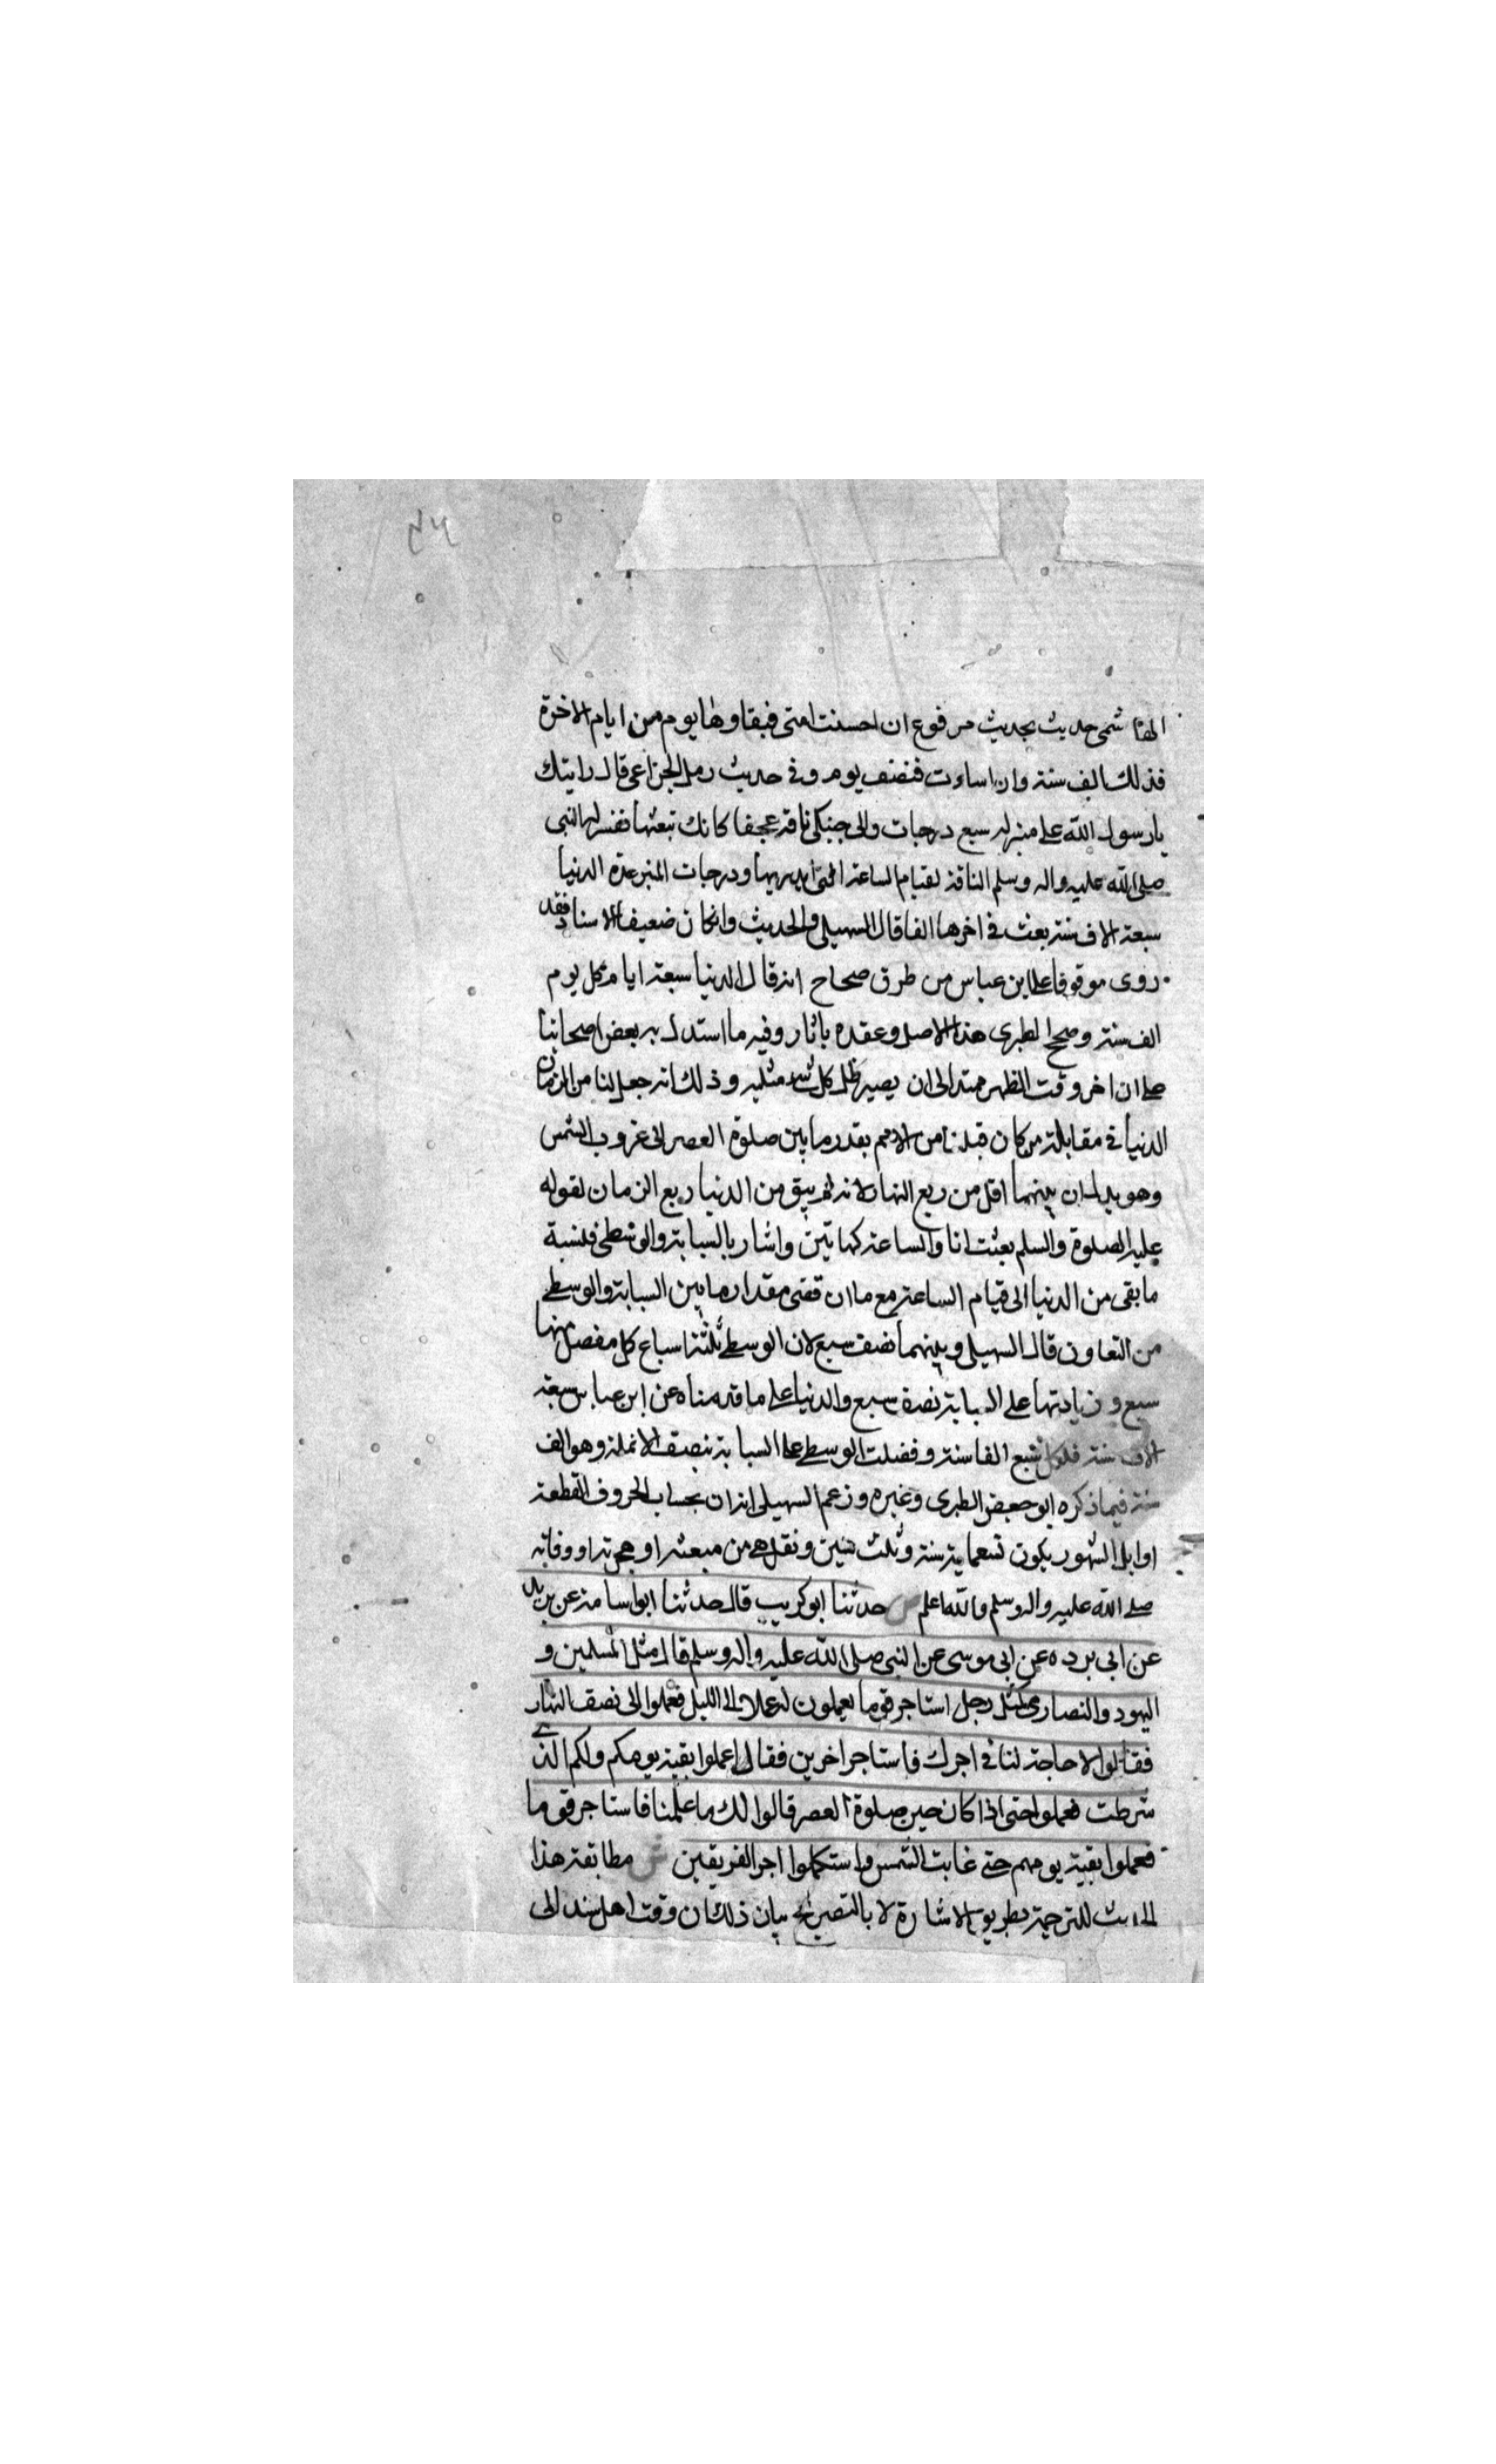 الهاشمى حديث بحديث مرفوع ان احسنت امتى فبقاوها يوم من ايام الاخرة
فذلك الف سنة وان اساءت فنصف يوم وفى حديث زمل الخزاعى قال رايتك
يا رسول الله على منبر له سبع درجات والى جنبك ناقة عجفا كانك تبعثها ففسر لها النبى
صلى الله عليه واله وسلم الناقة لقيام الساعة التى ودرجات المنبر عدة الدنيا
سبعة الاف سنة بعث فى اخرها الفا قال السهيلى والحديث وان كان ضعيف الاسناد فقد
روى موقوفا على ابن عباس من طرق صحاح انه قال الدنيا سبعة ايام كل يوم
الف سنة وصحح الطبرى هذا الاصل وعقده باثار وفيه ما استدل به بعض اصحابنا
على ان اخر وقت الظهر ممتد الى ان يصير ظل كل شىء مثليه وذلك انه جعل لنا من الزمان
الدنيا فى مقابلة من كان قبلنا من الامم بقدر ما بين صلوة العصر الى غروب الشمس
وهو يدل ان بينهما اقل من ربع النهار لانه لم يبق من الدنيا ربع الزمان لقوله
عليه الصلوة والسلم بعثت انا والساعة كهاتين واشار بالسبابة والوسطى فنسبة
ما بقى من الدنيا الى قيام الساعة مع ما انقضى مقدار ما بين السبابة والوسطى
من التعاون قال السهيلى وبينهما نصف سبع لان الوسطى ثلثة اسباع كل مفصل منها
سبع وزيادتها على السبابة نصف سبع والدنيا على ما قدمناه عن ابن عباس سبعة
الاف سنة فلكل سبع الف سنة وفضلت الوسطى على السبابة بنصف الانملة وهو الف
سنة فيما ذكره ابو جعفر الطبرى وغيره وزعم السهيلى ان بحساب الحروف المقطعة
اوايل السور يكون تسعماية سنة وثلث سنين ونقل هى من مبعثه او هجرته او وفاته
صلى الله عليه واله وسلم والله اعلم ص حدثنا ابو كريب قال حدثنا ابو اسامة عن بريد
عن ابى برده عن ابى موسى عن النبى صلى الله عليه واله وسلم قال مثل المسلمين و
اليهود والنصارى كمثل رجل استاجر قوما يعملون له عملا الى الليل فعملوا الى نصف النهار
فقالوا لا حاجة لنا فى اجرك فاستاجر اخرين فقال اعملوا بقية يومكم ولكم الذى
شرطت فعملوا حتى اذا كان حين صلوة العصر قالوا لك ما عملنا فاستاجر قوما
فعملوا بقية يومهم حتى غابت الشمس واستكملوا اجر الفريقين ش مطابقة هذا
الحديث للترجمة بطريق الاشارة لا بالتصريح بيان ذلك ان وقت الى